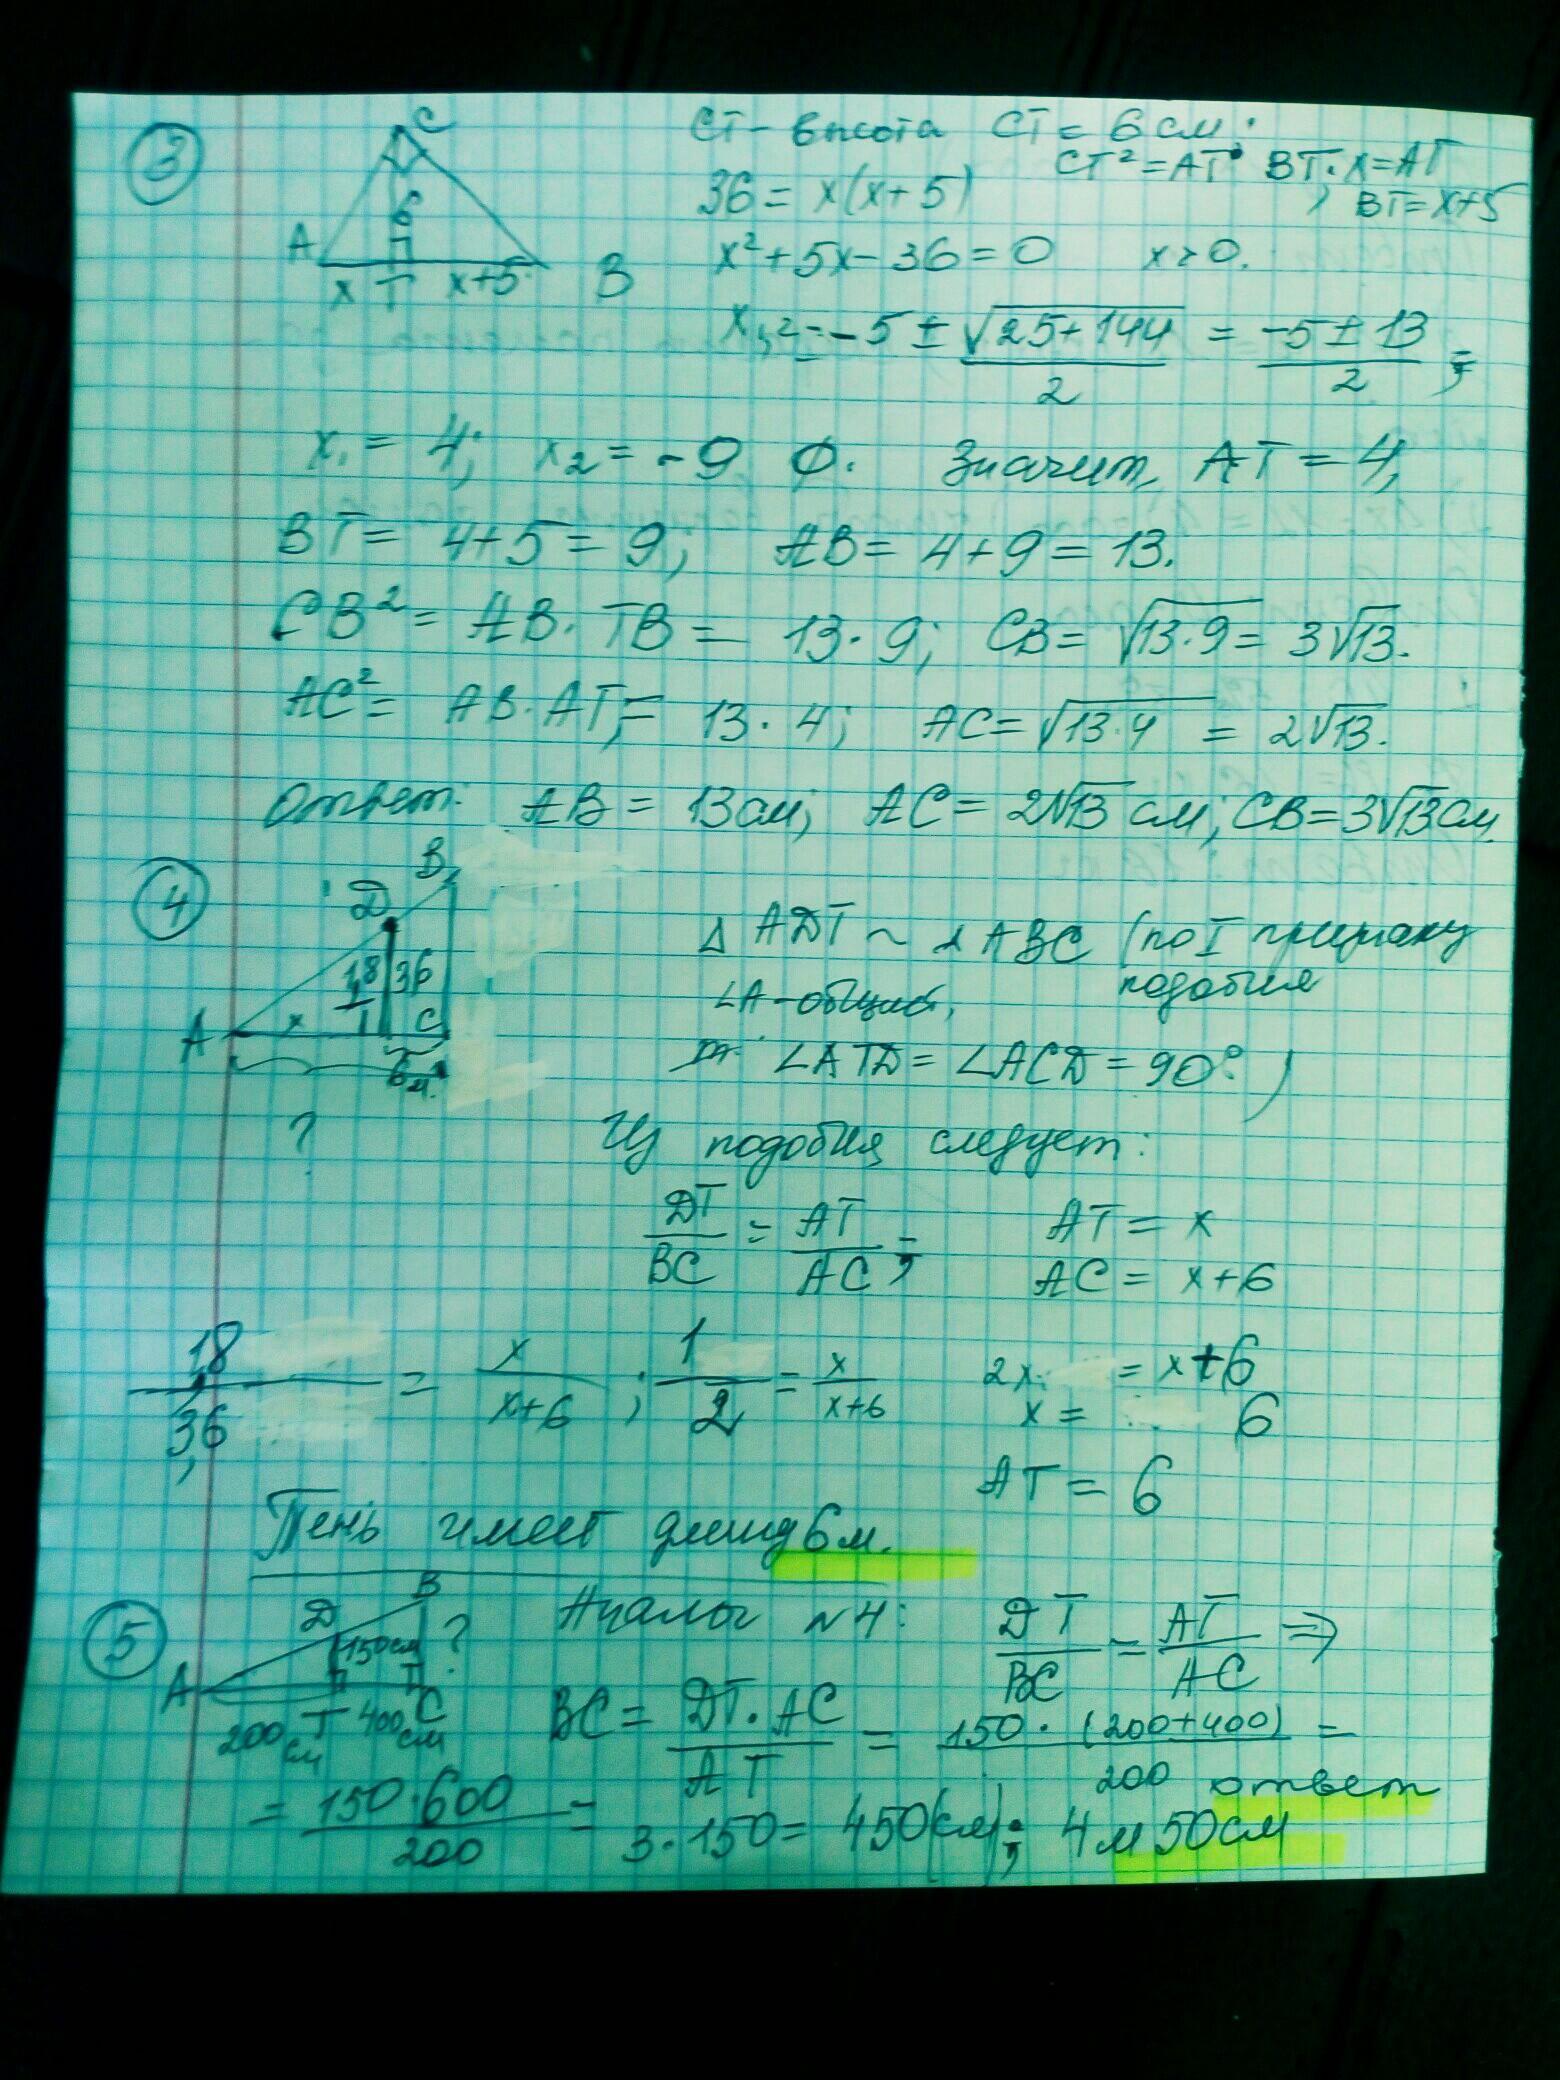 3
C
6
A
x T x+5 B
CT - высота CT = 6 см.
CT² = AT · BT. x = AT
36 = x(x+5) , BT = x+5
x² + 5x - 36 = 0 x > 0.
x₁,₂ = -5 ± √25+144 / 2 = -5 ± 13 / 2 ;
x₁ = 4; x₂ = -9 ∅. Значит, AT = 4,
BT = 4+5 = 9; AB = 4+9 = 13.
CB² = AB · TB = 13 · 9; CB = √13·9 = 3√13.
AC² = AB · AT; = 13 · 4; AC = √13·4 = 2√13.
Ответ: AB = 13 см; AC = 2√13 см; CB = 3√13 см
4
B
D
1,8 3,6
A x T C
6м.
?
Δ ADT ~ Δ ABC (по I признаку
подобия
∠A - общий,
∠ATD = ∠ACD = 90°.)
Из подобия следует:
DT/BC = AT/AC ; AT = x
AC = x+6
1,8/3,6 = x/x+6 ; 1/2 = x/x+6 2x = x+6
x = 6
AT = 6
Тень имеет длину 6 м.
5
B
D
150см ?
A
200 см T 400 см C
Аналог N4: DT/BC = AT/AC ⇒
BC = DT · AC / AT = 150 · (200+400) / 200 =
= 150 · 600 / 200 = 3 · 150 = 450 (см); 4 м 50 см
ответ